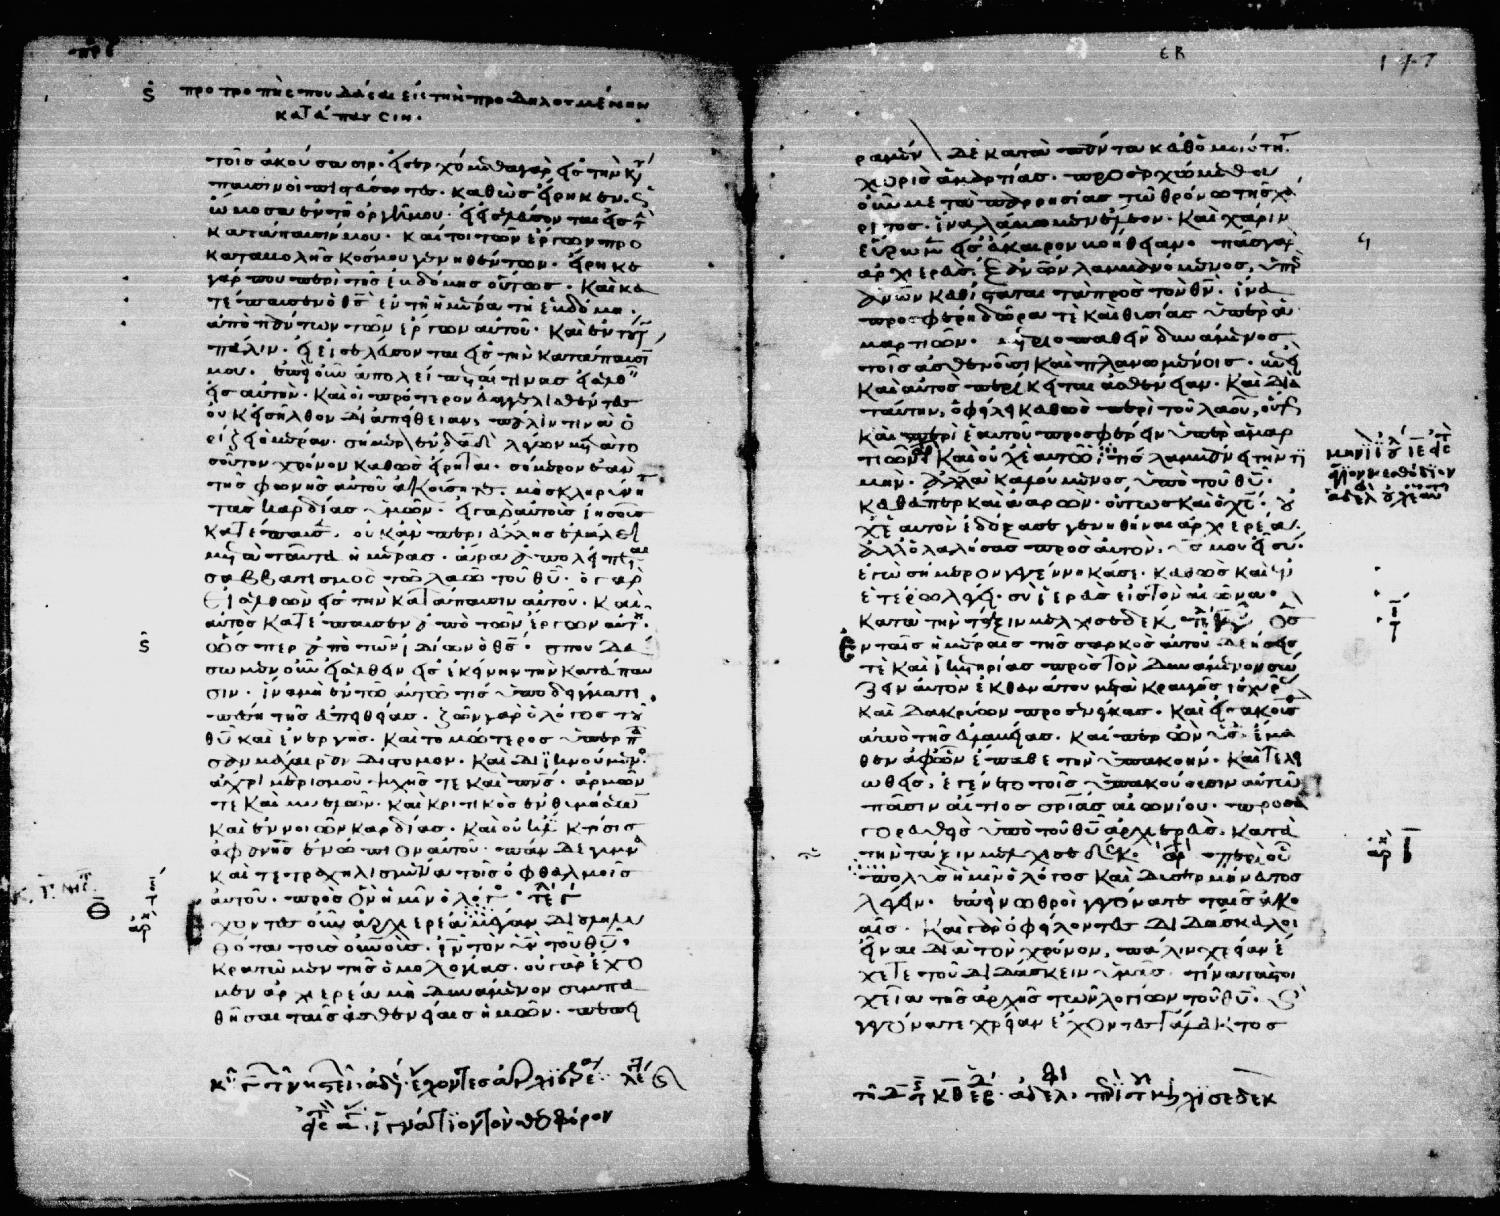 προτροπῆς που δάσαι εἰς τὴν προδηλουμένην
κατάπαυσιν.
τοῖς ἀκούσασιν. εἰσερχόμεθα γὰρ εἰς τὴν κα
παυσιν οἱ πιστεύσαντες. καθὼς εἴρηκεν. ὡς
ὤμοσα ἐν τῇ ὀργῇ μου. εἰ εἰσελεύσονται εἰς τ
κατάπαυσίν μου. καίτοι τῶν ἔργων ἀπὸ
καταβολῆς κόσμου γενηθέντων. εἴρηκε
γάρ που περὶ τῆς ἑβδόμης οὕτως. Καὶ κα
τέπαυσεν ὁ θς ἐν τῇ ἡμέρα τῇ ἑβδόμη.
ἀπὸ πάντων τῶν ἔργων αὐτοῦ. Καὶ ἐν τούτ
πάλιν. εἰ εἰσελεύσονται εἰς τὴν κατάπαυσί
μου. ἐπεὶ οὖν ἀπολείπεται τινας εἰσελθ
εἰς αὐτὴν. Καὶ οἱ πρότερον εὐαγγελισθέντες
οὐκ εἰσῆλθον δι ἀπείθειαν, πάλιν τινὰ ὁ
ρίζει ἡμέραν. σήμερον ἐν δαδ λέγων μετὰ το
σοῦτον χρόνον καθὼς εἴρηται. σήμερον ἐὰν
τῆς φωνῆς αὐτοῦ ἀκούσητε. μὴ σκληρύνητ
τὰς καρδίας ὑμῶν. εἰ γὰρ αὐτοὺς ἰησοῦς
κατέπαυσεν, οὐκ ἂν περὶ ἄλλης ἐλάλει
μετὰ ταῦτα ἡμέρας. ἄρα ἀπολείπεται
σαββατισμὸς τῶ λαῶ τοῦ θυ. ὁ γὰρ
εἰσελθὼν εἰς τὴν κατάπαυσιν αὐτοῦ. Καὶ
αὐτὸς κατέπαυσεν ἀπὸ τῶν ἔργων αὐτ.
ὥσπερ ἀπὸ τῶν ἰδίων ὁ θς. σπουδά
σωμεν οὖν εἰσελθεῖν εἰς ἐκείνην τὴν κατάπαυ
σιν. ἵνα μὴ ἐν τῶ αὐτῶ τις ὑποδείγματι
πέση τῆς ἀπειθείας. ζῶν γὰρ ὁ λόγος τοῦ
θυ καὶ ἐνεργής. Καὶ τομώτερος ὑπὲρ π
σαν μάχαιραν δίστομον. Καὶ διϊκνούμεν
ἄχρι μερισμοῦ ψυχῆς τε καὶ πνς. ἁρμῶν
τε καὶ μυελῶν. Καὶ κριτικὸς ἐνθυμήσεων
Καὶ ἐννοιῶν καρδίας. Καὶ οὐκ ἔστι κτίσις
ἀφανὴς ἐνώπιον αὐτοῦ. πάντα δὲ γυμνὰ
Καὶ τετραχηλισμένα τοῖς ὀφθαλμοῖς
αὐτοῦ. πρὸς ὃν ἡμῖν ὁ λόγ
χοντες οὖν ἀρχιερέα μέγαν διεληλυ
θότα τοὺς οὐνοὺς. ἰν τὸν υν τοῦ θυ.
κρατῶμεν τῆς ὁμολογίας. οὐ γὰρ ἔχο
μεν ἀρχιερέα μὴ δυνάμενον συμπα
θῆσαι ταῖς ἀσθενείαις ἡμῶν. πεπει
147
ραμέν δὲ κατὰ πάντα καθ ὁμοιότητ
χωρὶς ἁμαρτίας. προσερχώμεθα
οὖν μετὰ παρρησίας τῶ θρόνω τῆς χά
ριτος. ἵνα λάβωμεν ἔλεον. Καὶ χάριν
εὕρωμεν εἰς εὔκαιρον βοήθειαν. πᾶς γὰρ
ἀρχιερεὺς. ἐξ ἀνων λαμβανόμενος, ὑπὲρ
ἀνων καθίσταται τὰ πρὸς τὸν θν. ἵνα
προσφέρη δῶρα τὲ καὶ θυσίας ὑπὲρ ἁ
μαρτιῶν. μετριοπαθεῖν δυνάμενος
τοῖς ἀσθενοῦσι καὶ πλανωμένοις. ἐπεὶ
Καὶ αὐτὸς περίκειται ἀσθένειαν. Καὶ διὰ
ταύτην, ὀφείλει καθὼς περὶ τοῦ λαοῦ, οὕτ
Καὶ περὶ ἑαυτοῦ προσφέρειν ὑπὲρ ἁμαρ
τιῶν. Καὶ οὐχ ἑαυτῶ τὶς λαμβάνει τὴν τι
μὴν. ἀλλὰ καλούμενος ὑπὸ τοῦ θυ.
Καθάπερ καὶ ἀαρὼν. οὕτως καὶ ὁ χς. οὐ
χ ἑαυτὸν ἐδόξασε γενηθῆναι ἀρχιερέα.
ἀλλ ὁ λαλήσας πρὸς αὐτὸν. υς μου εἶ σύ.
ἐγὼ σήμερον γεγέννηκά σε. Καθὼς καὶ ἐν
ἑτέρω λέγει. σὺ ἱερεὺς εἰς τὸν αἰῶνα.
Κατὰ τὴν τάξιν μελχισεδέκ ὃς
ἐν ταῖς ἡμέραις τῆς σαρκὸς αὐτοῦ. δεήσεις
τὲ καὶ ἱκετηρίας πρὸς τὸν δυνάμενον σώ
ζειν αὐτὸν ἐκ θανάτου μετὰ κραυγῆς ἰσχυρᾶς
Καὶ δακρύων προσενέγκας. Καὶ εἰσακουσ
ἀπὸ τῆς εὐλαβείας. Καίπερ ὢν υς. ἔμα
θεν ἀφ ὧν ἔπαθε τὴν ὑπακοὴν. Καὶ τελει
ωθεὶς, ἐγένετο τοῖς ὑπακούουσιν αὐτῶ
πᾶσιν αἴτιος σριας αἰωνίου. προσα
γορευθεὶς ὑπὸ τοῦ θυ ἀρχιερεὺς. Κατὰ
τὴν τάξιν μελχισεδέκ. περὶ οὗ
πολὺς ἡμῖν ὁ λόγος καὶ δυσερμήνευτος
λέγειν. ἐπεὶ νωθροὶ γεγόνατε ταῖς ἀκο
αῖς. Καὶ γὰρ ὀφείλοντες διδάσκαλοι
εἶναι διὰ τὸν χρόνον, πάλιν χρείαν ἔ
χετε τοῦ διδάσκειν ὑμᾶς. τίνα τὰ στοι
χεῖα τῆς ἀρχῆς τῶν λογίων τοῦ θυ. Καὶ
γεγόνατε χρείαν ἔχοντες γάλακτος